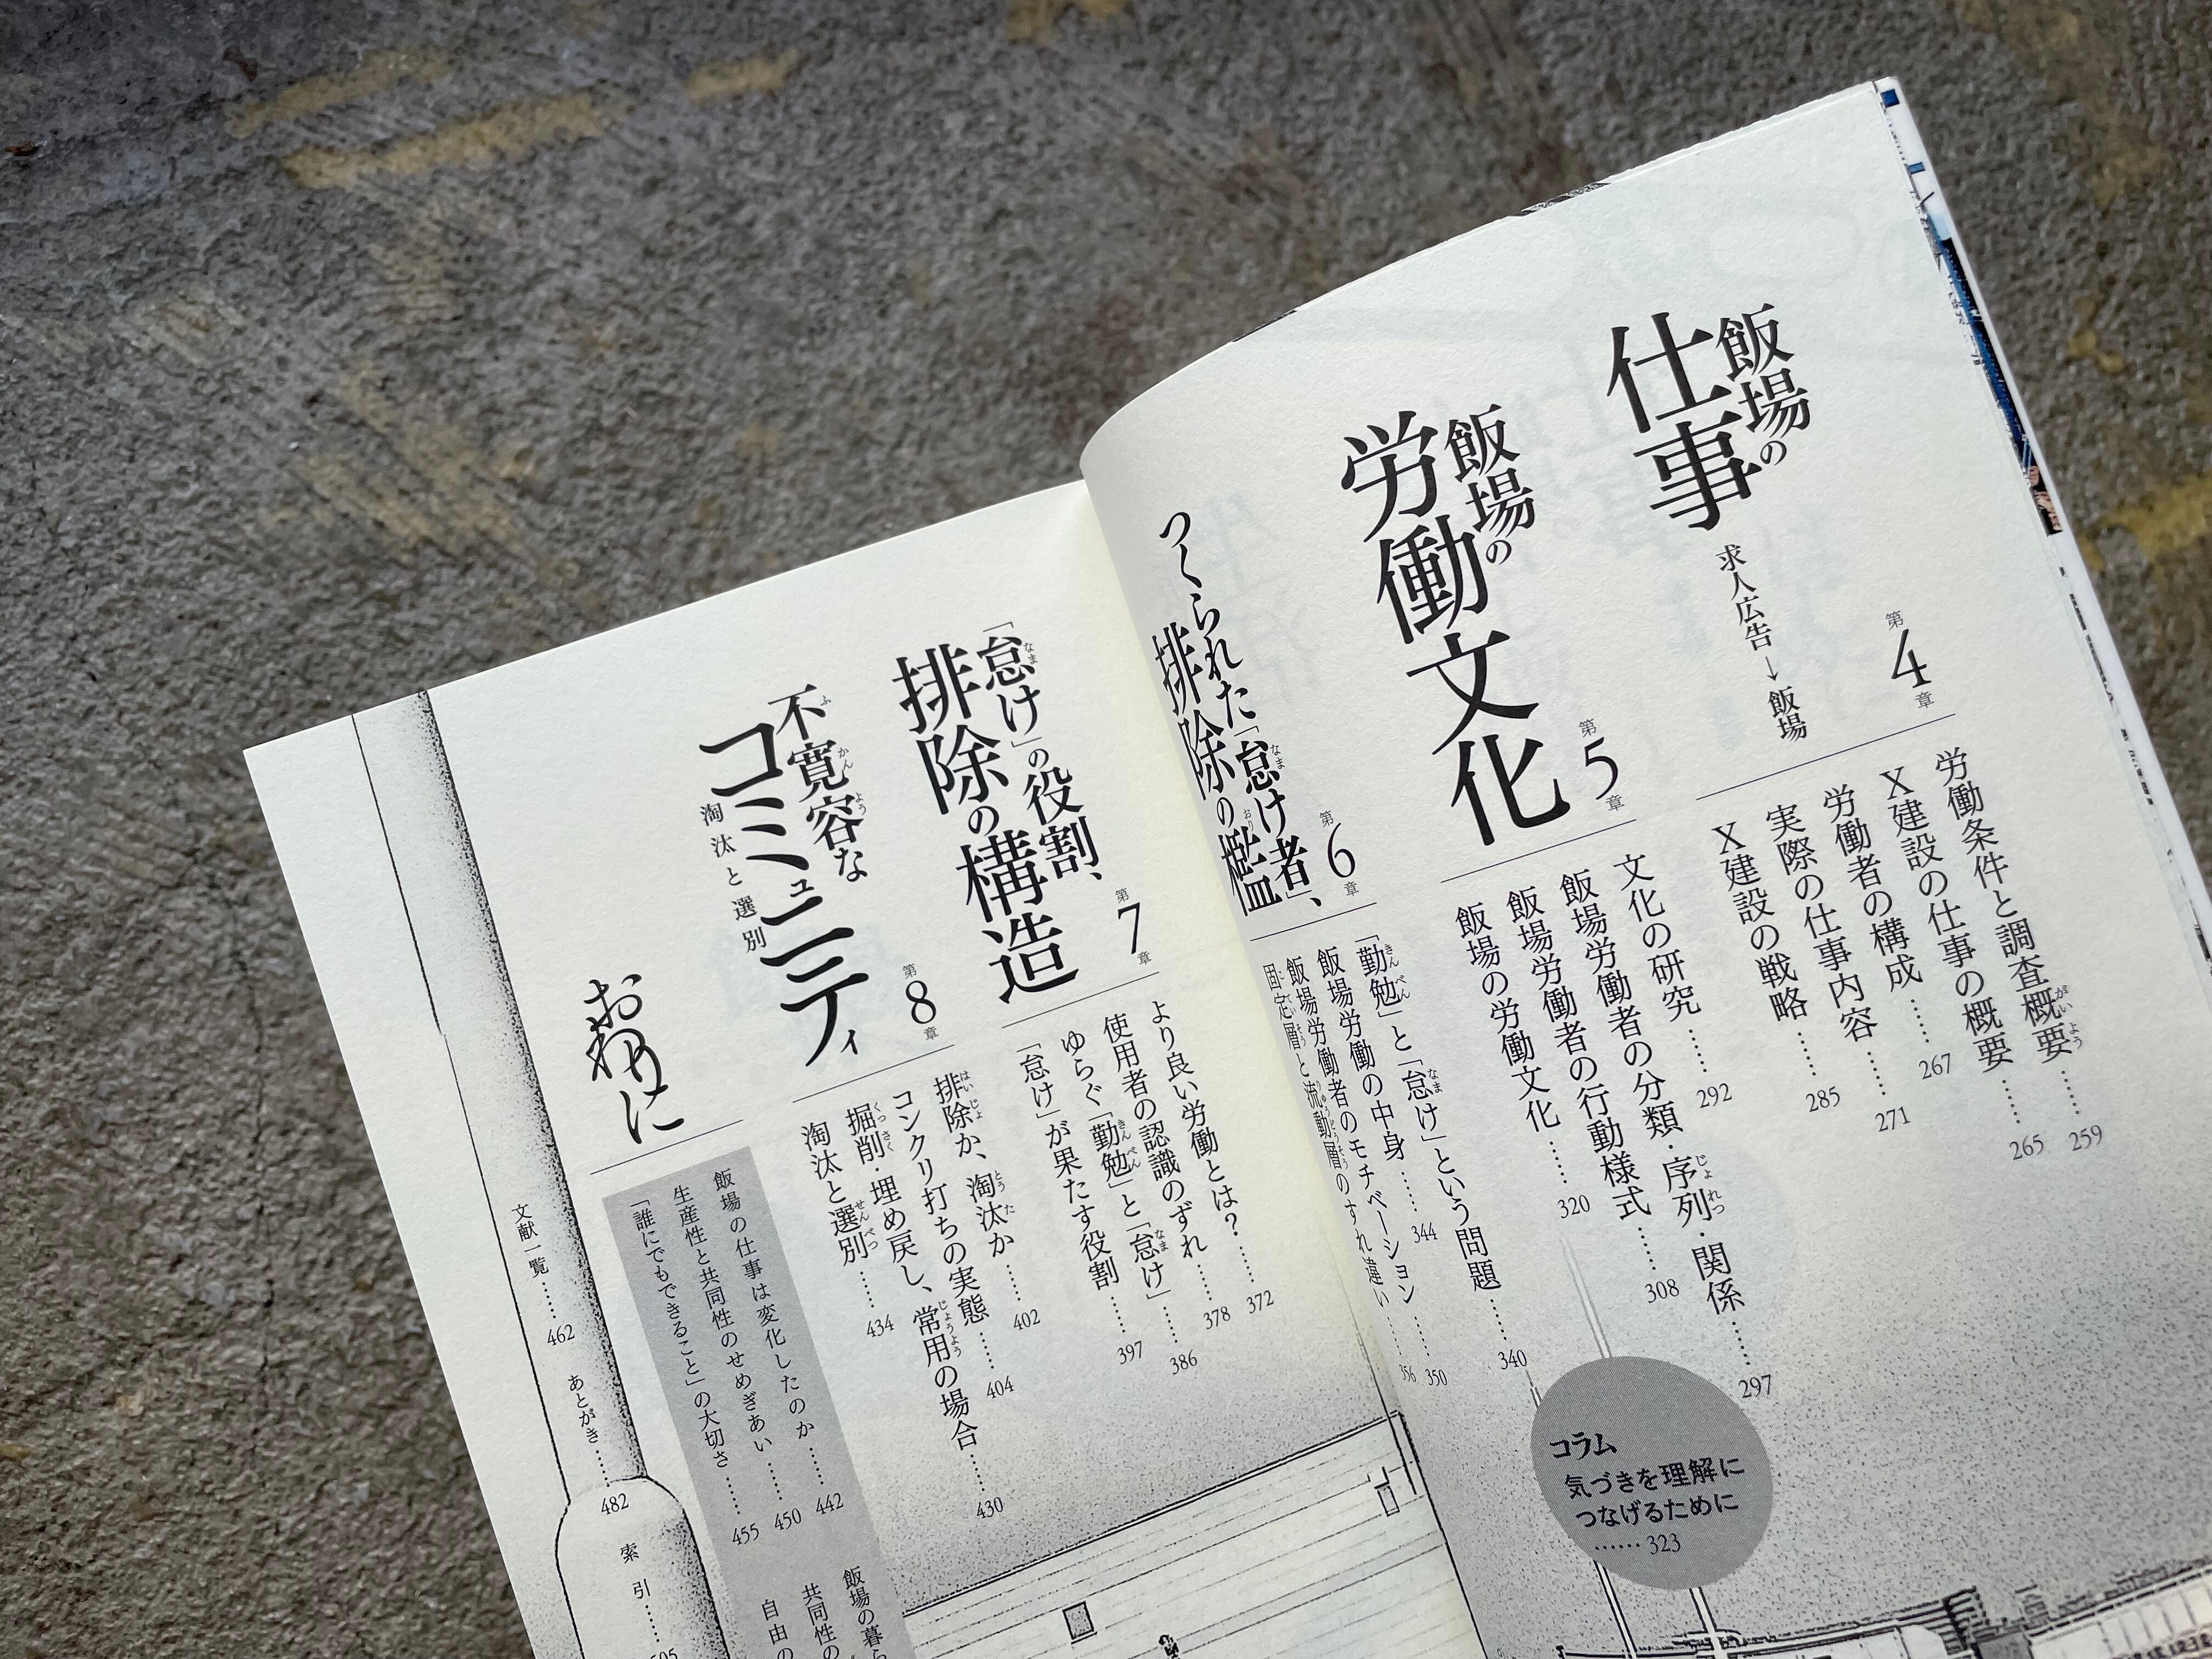 飯場の
仕事
求人広告→飯場
第4章
労働条件と調査概要……259
X建設の仕事の概要……265
労働者の構成……267
実際の仕事内容……271
X建設の戦略……285
飯場の
労働文化
第5章
文化の研究……292
飯場労働者の分類・序列・関係……297
飯場労働者の行動様式……308
飯場の労働文化……320
コラム
気づきを理解に
つなげるために
……323
つくられた「怠け者」、
排除の檻
第6章
「勤勉」と「怠け」という問題……340
飯場労働の中身……344
飯場労働者のモチベーション……350
固定層と流動層のすれ違い……356
「怠け」の役割、
排除の構造
第7章
より良い労働とは？……372
使用者の認識のずれ……378
ゆらぐ「勤勉」と「怠け」……386
「怠け」が果たす役割……397
不寛容な
コミュニティ
淘汰と選別
第8章
排除か、淘汰か……402
コンクリ打ちの実態……404
掘削・埋め戻し、常用の場合……430
淘汰と選別……434
おわりに
飯場の仕事は変化したのか……442
生産性と共同性のせめぎあい……450
「誰にでもできること」の大切さ……455
飯場の暮ら
共同性の
自由の
文献一覧……462
あとがき……482
索引……